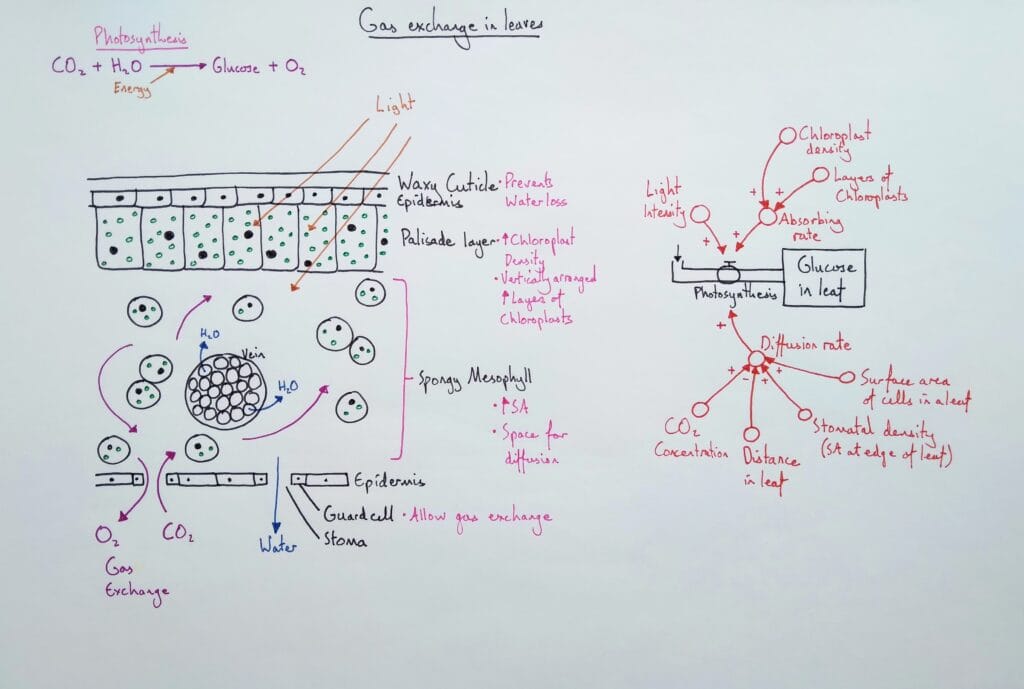 Gas exchange in leaves
Photosynthesis
CO₂ + H₂O → Glucose + O₂
Energy
Light
Waxy Cuticle · Prevents
Water loss
Epidermis
Palisade layer · ↑ Chloroplast
Density
· Vertically arranged
↑ Layers of
Chloroplasts
H₂O
Vein
H₂O
Spongy Mesophyll
· ↑ SA
· Space for
diffusion
Epidermis
Guard cell · Allow gas exchange
Stoma
O₂
CO₂
Water
Gas
Exchange
Chloroplast
density
+
+
Layers of
Chloroplasts
Light
Intensity
+
+
Absorbing
rate
Photosynthesis
Glucose
in leaf
+
Diffusion rate
+
-
+
+
Surface area
of cells in a leaf
CO₂
Concentration
Distance
in leaf
Stomatal density
(SA at edge of leaf)